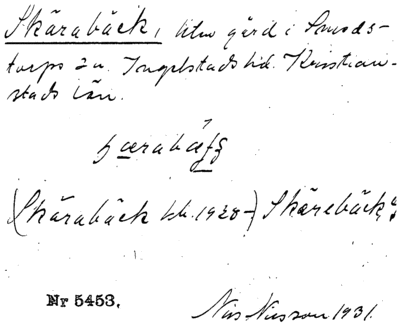 Skärabäck, liten gård i Smeds-
torps sn. Ingelstads hd. Kristian-
stads län.
(Skärabäck kb. 1920-) Skärebäck
Nr 5453.
Nils Nilsson 1931.